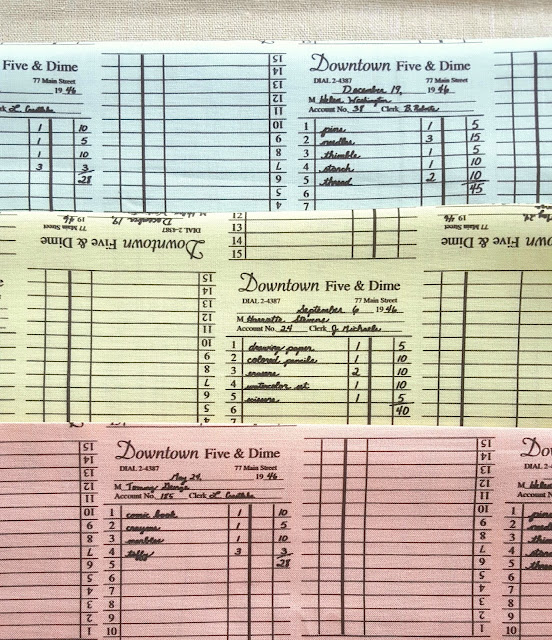 Five & Dime
77 Main Street
19 46
1 10
1 5
1 10
3 3
28
15
14
13
12
11
10
9
8
7
6
5
Downtown Five & Dime
DIAL 2-4387 77 Main Street
December 19, 19 46
M Helen Washington
Account No. 38 Clerk B. Roberts
1 pins 1 5
2 needles 3 15
3 thimble 1 5
4 starch 1 10
5 thread 2 10
6 45
7
15
14
13
12
11
10
9
8
7
6
Downtown Five & Dime
77 Main Street
December 19, 19 46
12
13
14
15
Downtown Five & Dime
DIAL 2-4387
77 Main Street
19 46
15
14
13
12
11
10
9
8
7
6
5
Downtown Five & Dime
DIAL 2-4387 77 Main Street
September 6 19 46
M Henrietta Stevens
Account No. 24 Clerk J. Michaels
1 drawing paper 1 5
2 colored pencils 1 10
3 erasers 2 10
4 watercolor set 1 10
5 scissors 1 5
6 40
15
14
13
12
11
10
9
8
7
6
5
4
3
2
1
Downtown Five & Dime
DIAL 2-4387 77 Main Street
May 24, 19 46
M Tommy
Account No. 185 Clerk L.
1 comic book 1 10
2 crayons 1 5
3 marbles 1 10
4 taffy 3 3
5 28
6
7
8
9
10
15
14
13
12
11
10
9
8
7
6
5
4
3
2
1
Dow
DIAL 2-4387
M Helen
Account No.
1 pins
2 needles
3
4
5
6
7
8
9
10